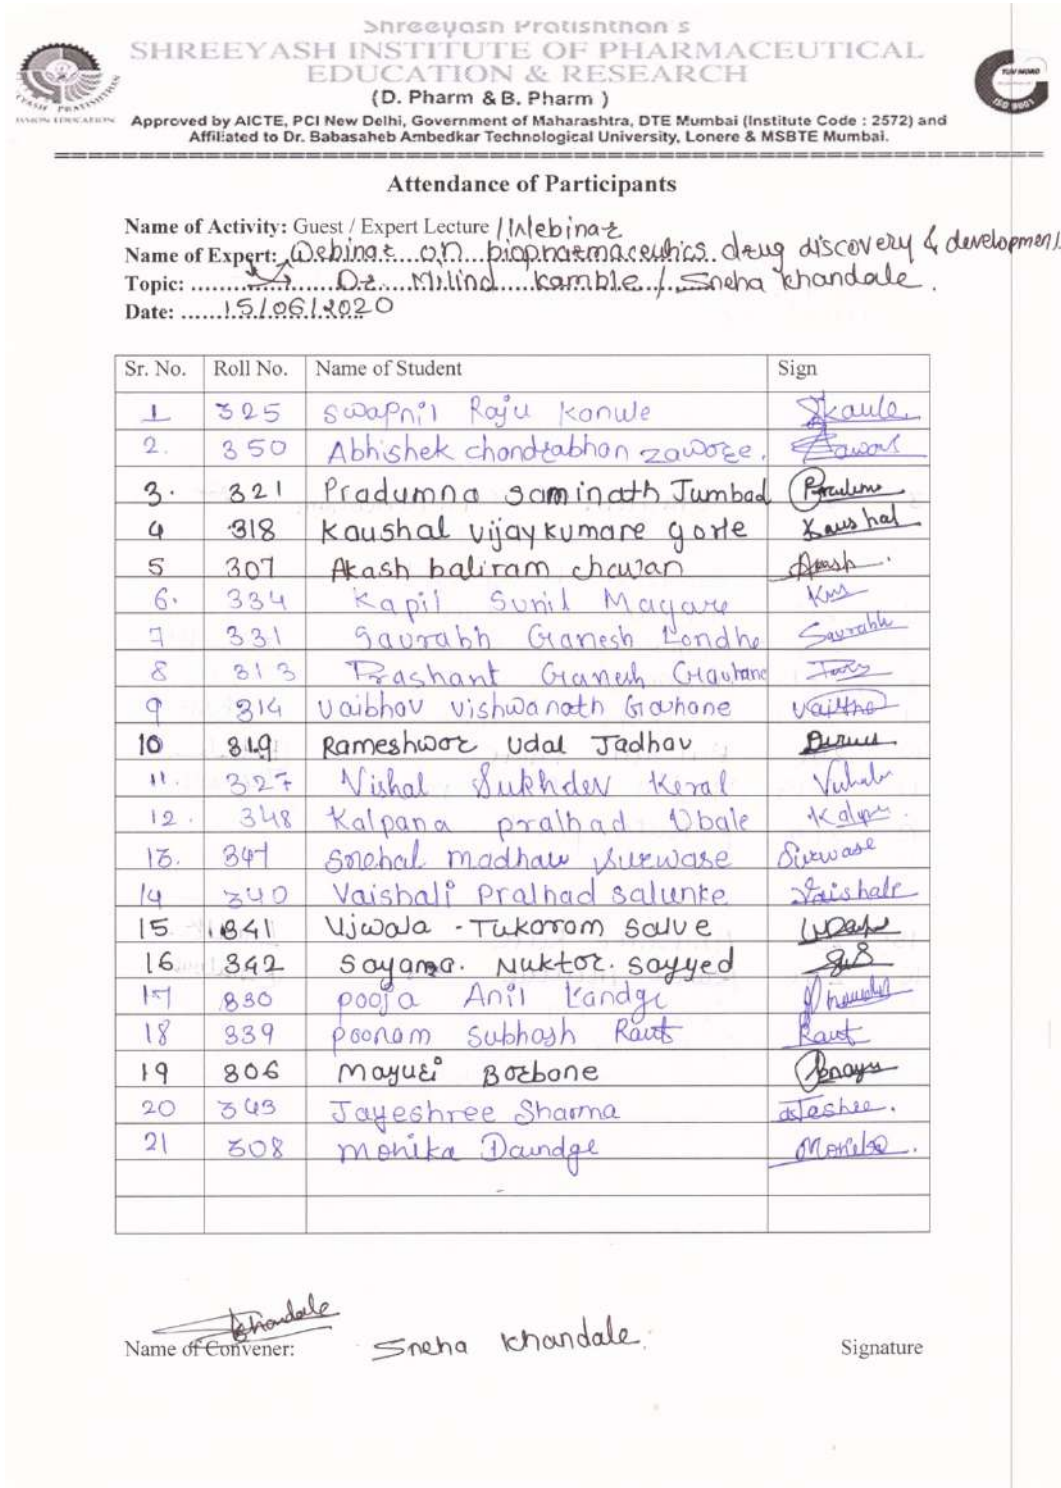 Shreeyash Pratishthan's
SHREEYASH INSTITUTE OF PHARMACEUTICAL
EDUCATION & RESEARCH
(D. Pharm & B. Pharm )
Approved by AICTE, PCI New Delhi, Government of Maharashtra, DTE Mumbai (Institute Code : 2572) and
Affiliated to Dr. Babasaheb Ambedkar Technological University, Lonere & MSBTE Mumbai.
TUV NORD
ISO 9001
Attendance of Participants
Name of Activity: Guest / Expert Lecture / Webinar
Name of Expert: Webinar on biopharmaceutics drug discovery & development
Topic: Dr. Milind Kamble / Sneha Khandale.
Date: 15/06/2020
Sr. No. Roll No. Name of Student Sign
1 325 Swapnil Raju Kanule Skaule
2. 350 Abhishek chandrabhan zaware.
3. 321 Pradumna saminath Jumbad
4 318 Kaushal vijaykumare gorle Kaushal
5 307 Akash baliram chavan Akash
6. 334 Kapil Sunil Magare
7 331 Saurabh Ganesh Londhe Saurabh
8 313 Prashant Ganesh Gavhane
9 314 Vaibhav vishwanath Gavhane
10 319 Rameshwar Udal Jadhav
11. 327 Vishal Sukhdev Keral Vishal
12. 348 Kalpana pralhad Ubale
13. 347 Snehal madhav Surwase Surwase
14 340 Vaishali Pralhad salunke Vaishali
15 341 Ujwala - Tukaram Salve
16 342 Sayama. Nuktar. Sayyed
17 330 pooja Anil Landge
18 339 poonam Subhash Raut Raut
19 306 Mayuri Borbane
20 343 Jayeshree Sharma
21 308 monika Daundge
Khandale
Name of Convener: Sneha Khandale. Signature